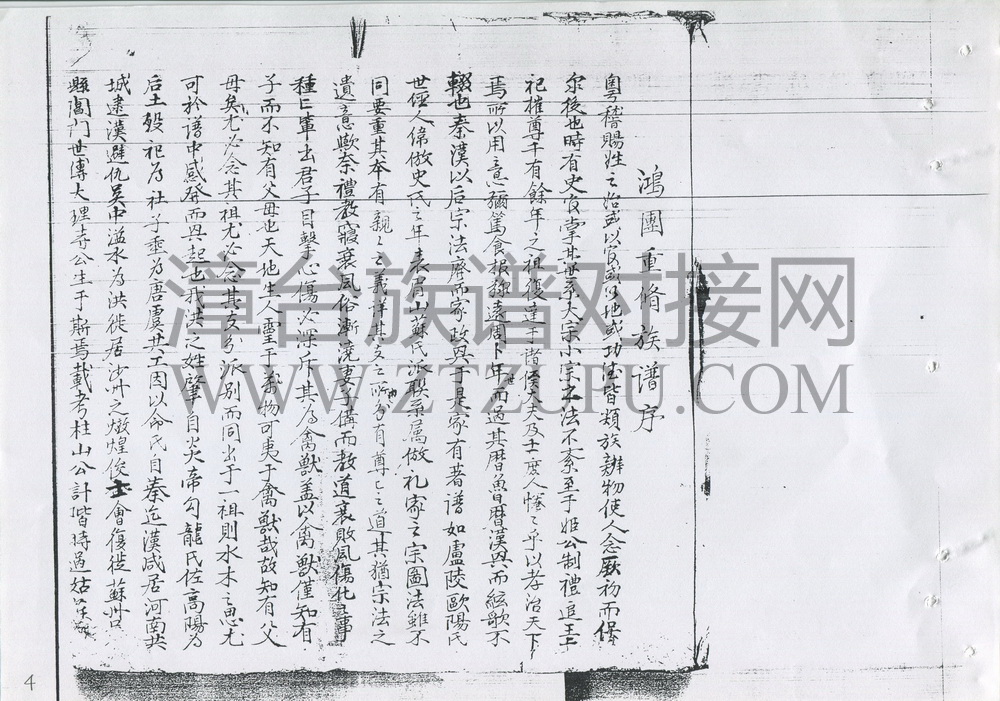 鴻團重脩族譜序
粵稽賜姓之治或以官或以地或功德皆類族辨物使人念厥初而保
尔後也時有史官掌其世系大宗小宗之法不紊至于姬公制禮追王上
祀摧尊千有餘年之祖復達于諸侯大夫及士庶人惓之乎以孝治天下
焉所以用意彌篤食根綿遠周卜年世而過其曆魯曆漢興而絃歌不
輟也秦漢以后宗法廢而家政興于是家有著譜如盧陵歐陽氏
世經人偉倣史氏之年表眉山蘇氏派聯系属倣礼家之宗圖法雖不
同要重其本有親之之義詳其支之所由分有尊之之道其猶宗法之
遺意歟奈禮教寢衰風俗漸澆妻子搆而教道衰敗風傷化之事
種之軰出君子目擊心傷必深斥其為禽獸盖以禽獸僅知有
子而不知有父母也天地生人靈于萬物可夷于禽獸哉故知有父
母矣尤必念其祖尤必念其支分派別而同出于一祖則水木之思尤
可於譜中感發而興起也我洪之姓肇自炎帝勾龍氏佐高陽為
后土歿祀為社子垂為唐虞共工因以命氏自秦迄漢咸居河南共
城建漢避仇吳中溢水為洪徙居沙州之燉煌後士會復徙蘇州
縣閶門世傳大理寺公生于斯焉載考柱山公計偕時過姑
4
漳台族谱对接网
WWW.ZTZUPU.COM